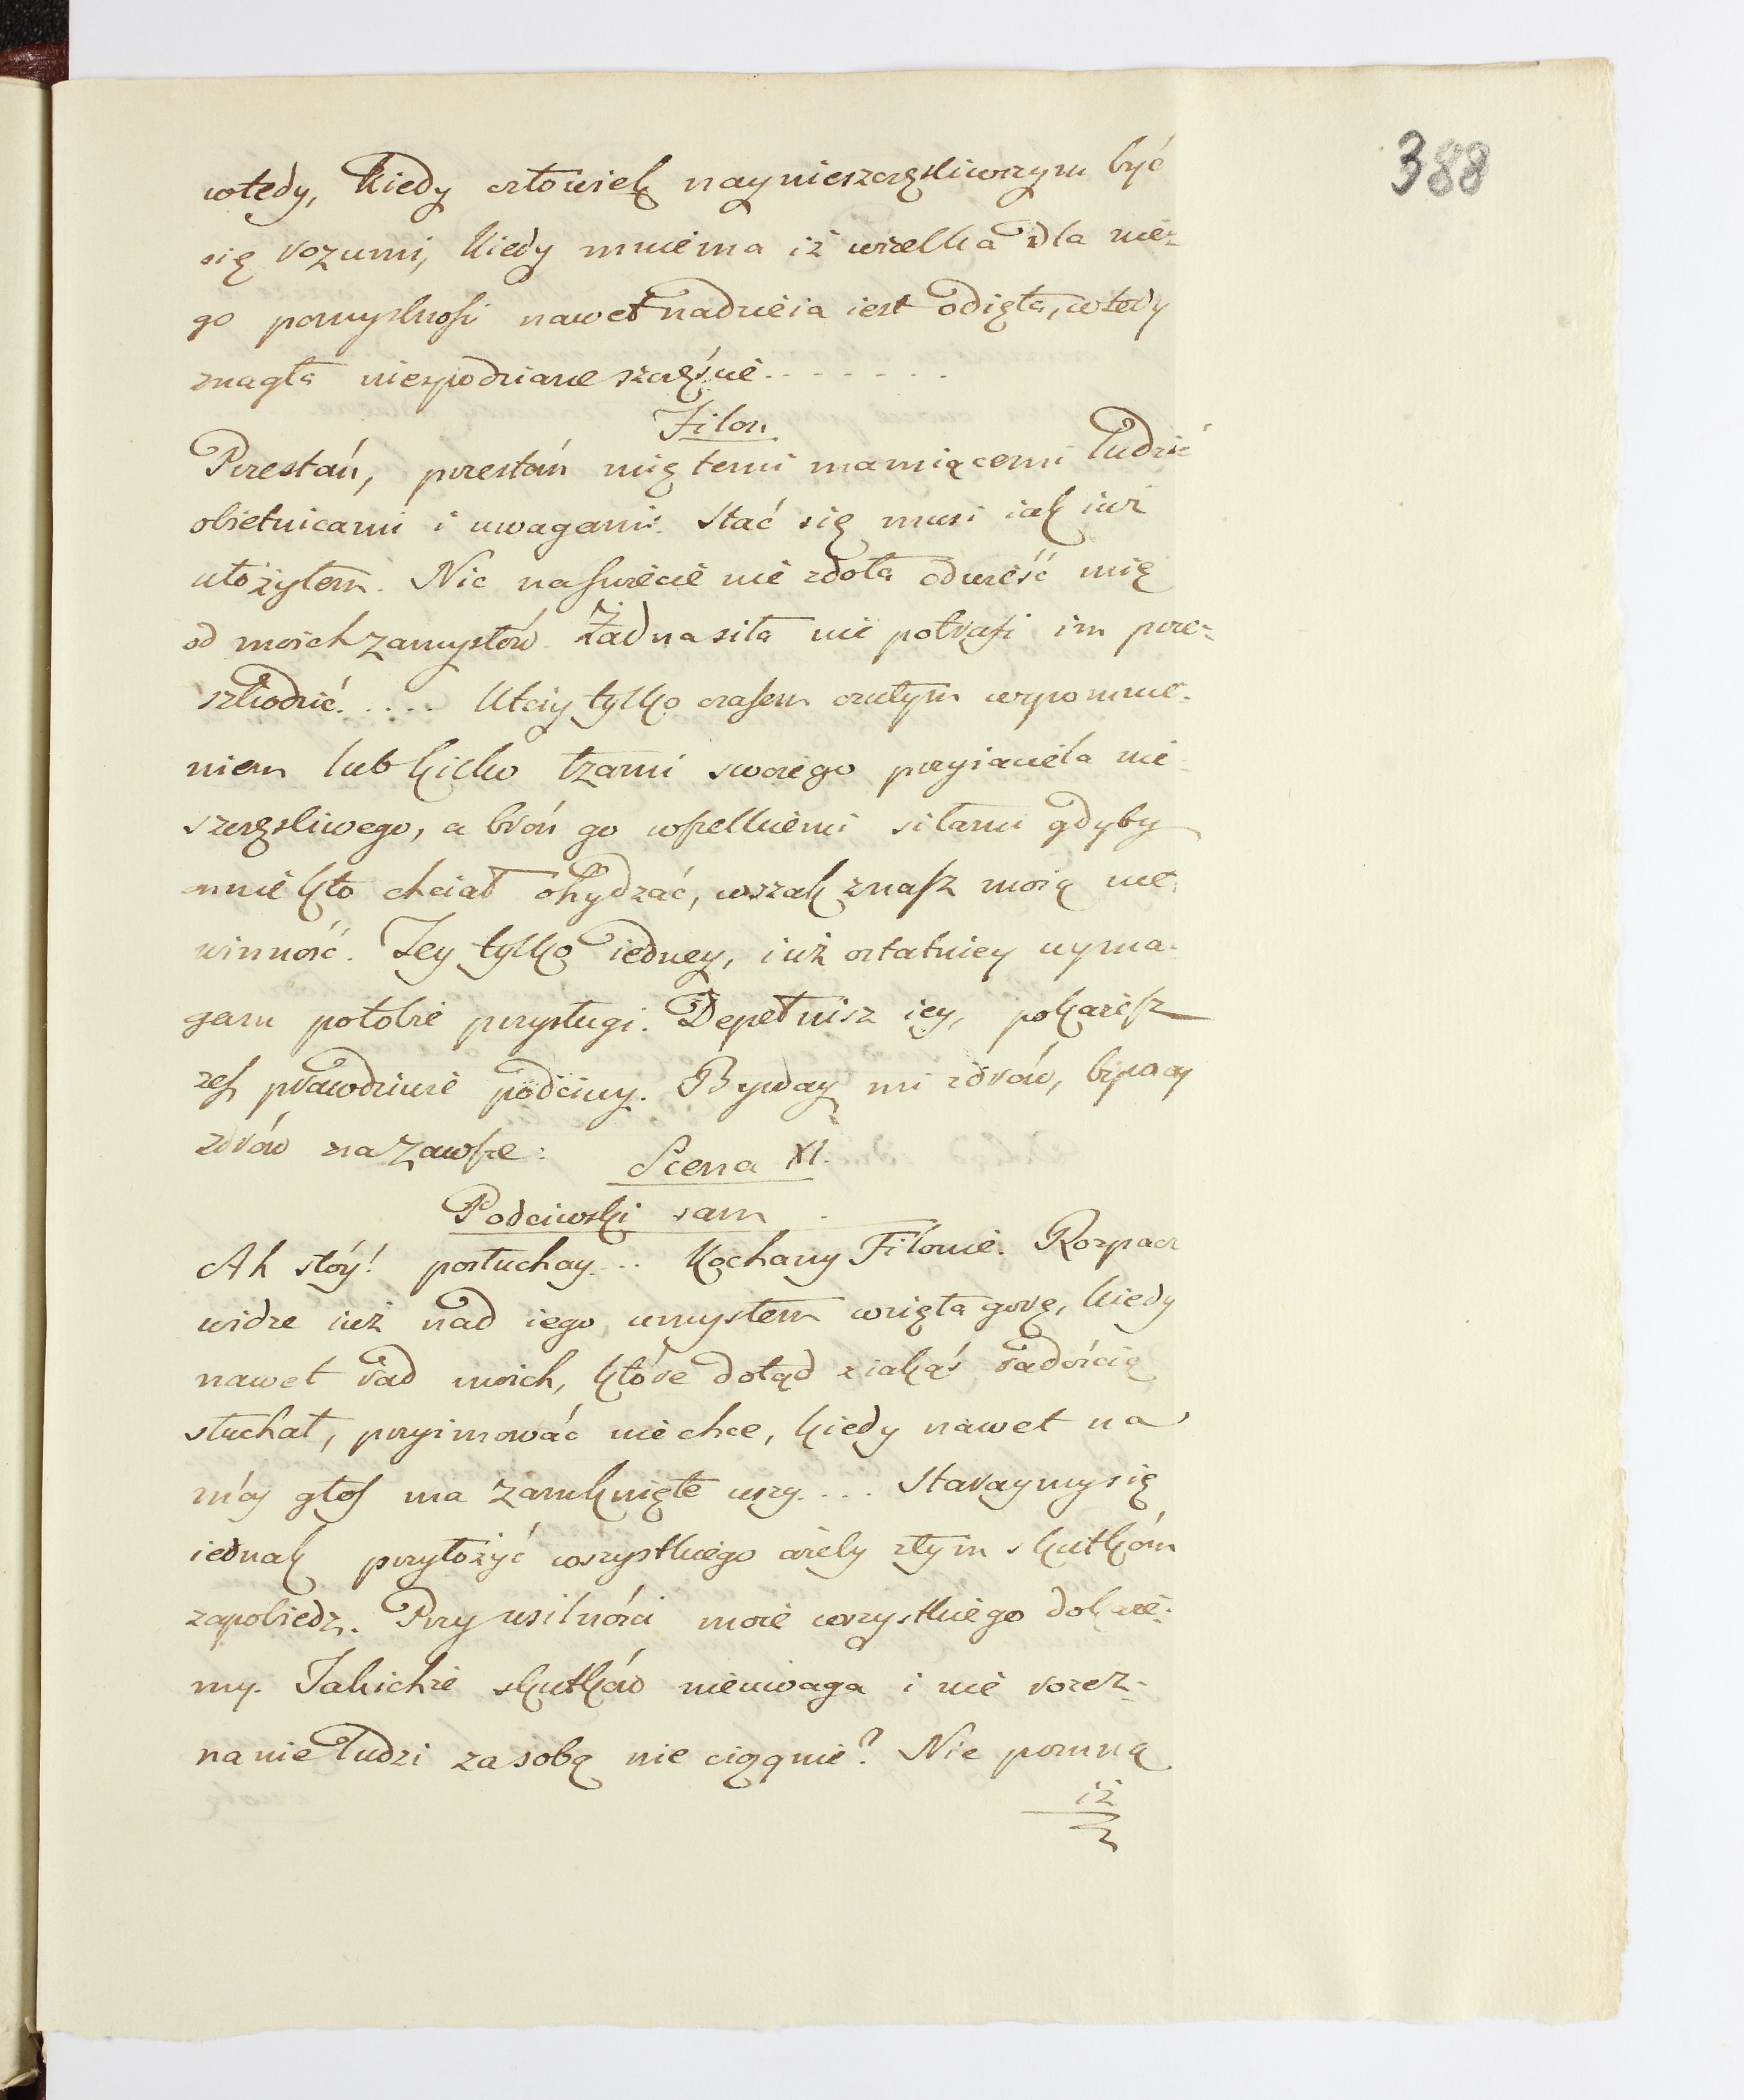 388
wtedy, kiedy człowiek naynieszczęsliwszym być
się rozumi, kiedy mniema iż wielka dla nie-
go pomyslnosi nawet nadzieia iest odięta, wtedy
znagła niespodziane szczęście.......
Filon
Przestań, przestań mię temi mamiącemi łudzić
obietnicami i uwagami. Stać się musi iak iuż
ułożyłem. Nic naswiecie nie zdoła odwieść mię
od moich zamysłów. Żadna siła nie potrafi im prze-
szkodzić..... Uczciy tylko czasem czułym wspomnie-
niem lub kilko łzami swoiego przyiaciela nie-
szczęsliwego, a broń go wszelkiemi siłami gdyby
mnie kto chciał ohydzać, wszak znasz moią nie-
winność. Jey tylko iedney, iuż ostatniey wyma-
gam potobie przysługi. Dopełnisz iey, pokażesz
żeś prawdziwie podciwy. Byway mi zdrów, byway
zdrów na zawsze:
Scena XI.
Podciwski sam
Ah stóy! posłuchay... Kochany Filonie. Rozpacz
widze iuż nad iego umysłem wzięła gorę, kiedy
nawet rad moich, które dotąd z iakąś radością
słuchał, przyimować nie chce, kiedy nawet na
móy głos ma zamknięte uszy.... Staraymy się
iednak przyłożyć wszystkiego ażeby złym skutkóm
zapobiedz. Przy usilności może wszystkiego dokaże-
my. Jakichże skutków nieuwaga i nie rozez-
nanie ludzi za sobą nie ciągnie? Nie pomną
iż